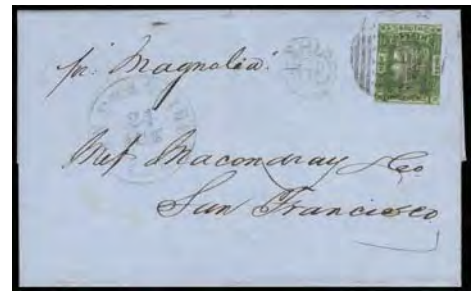 pr. Magnolia.
SHIP
Mess Macondray & Co
San Francisco